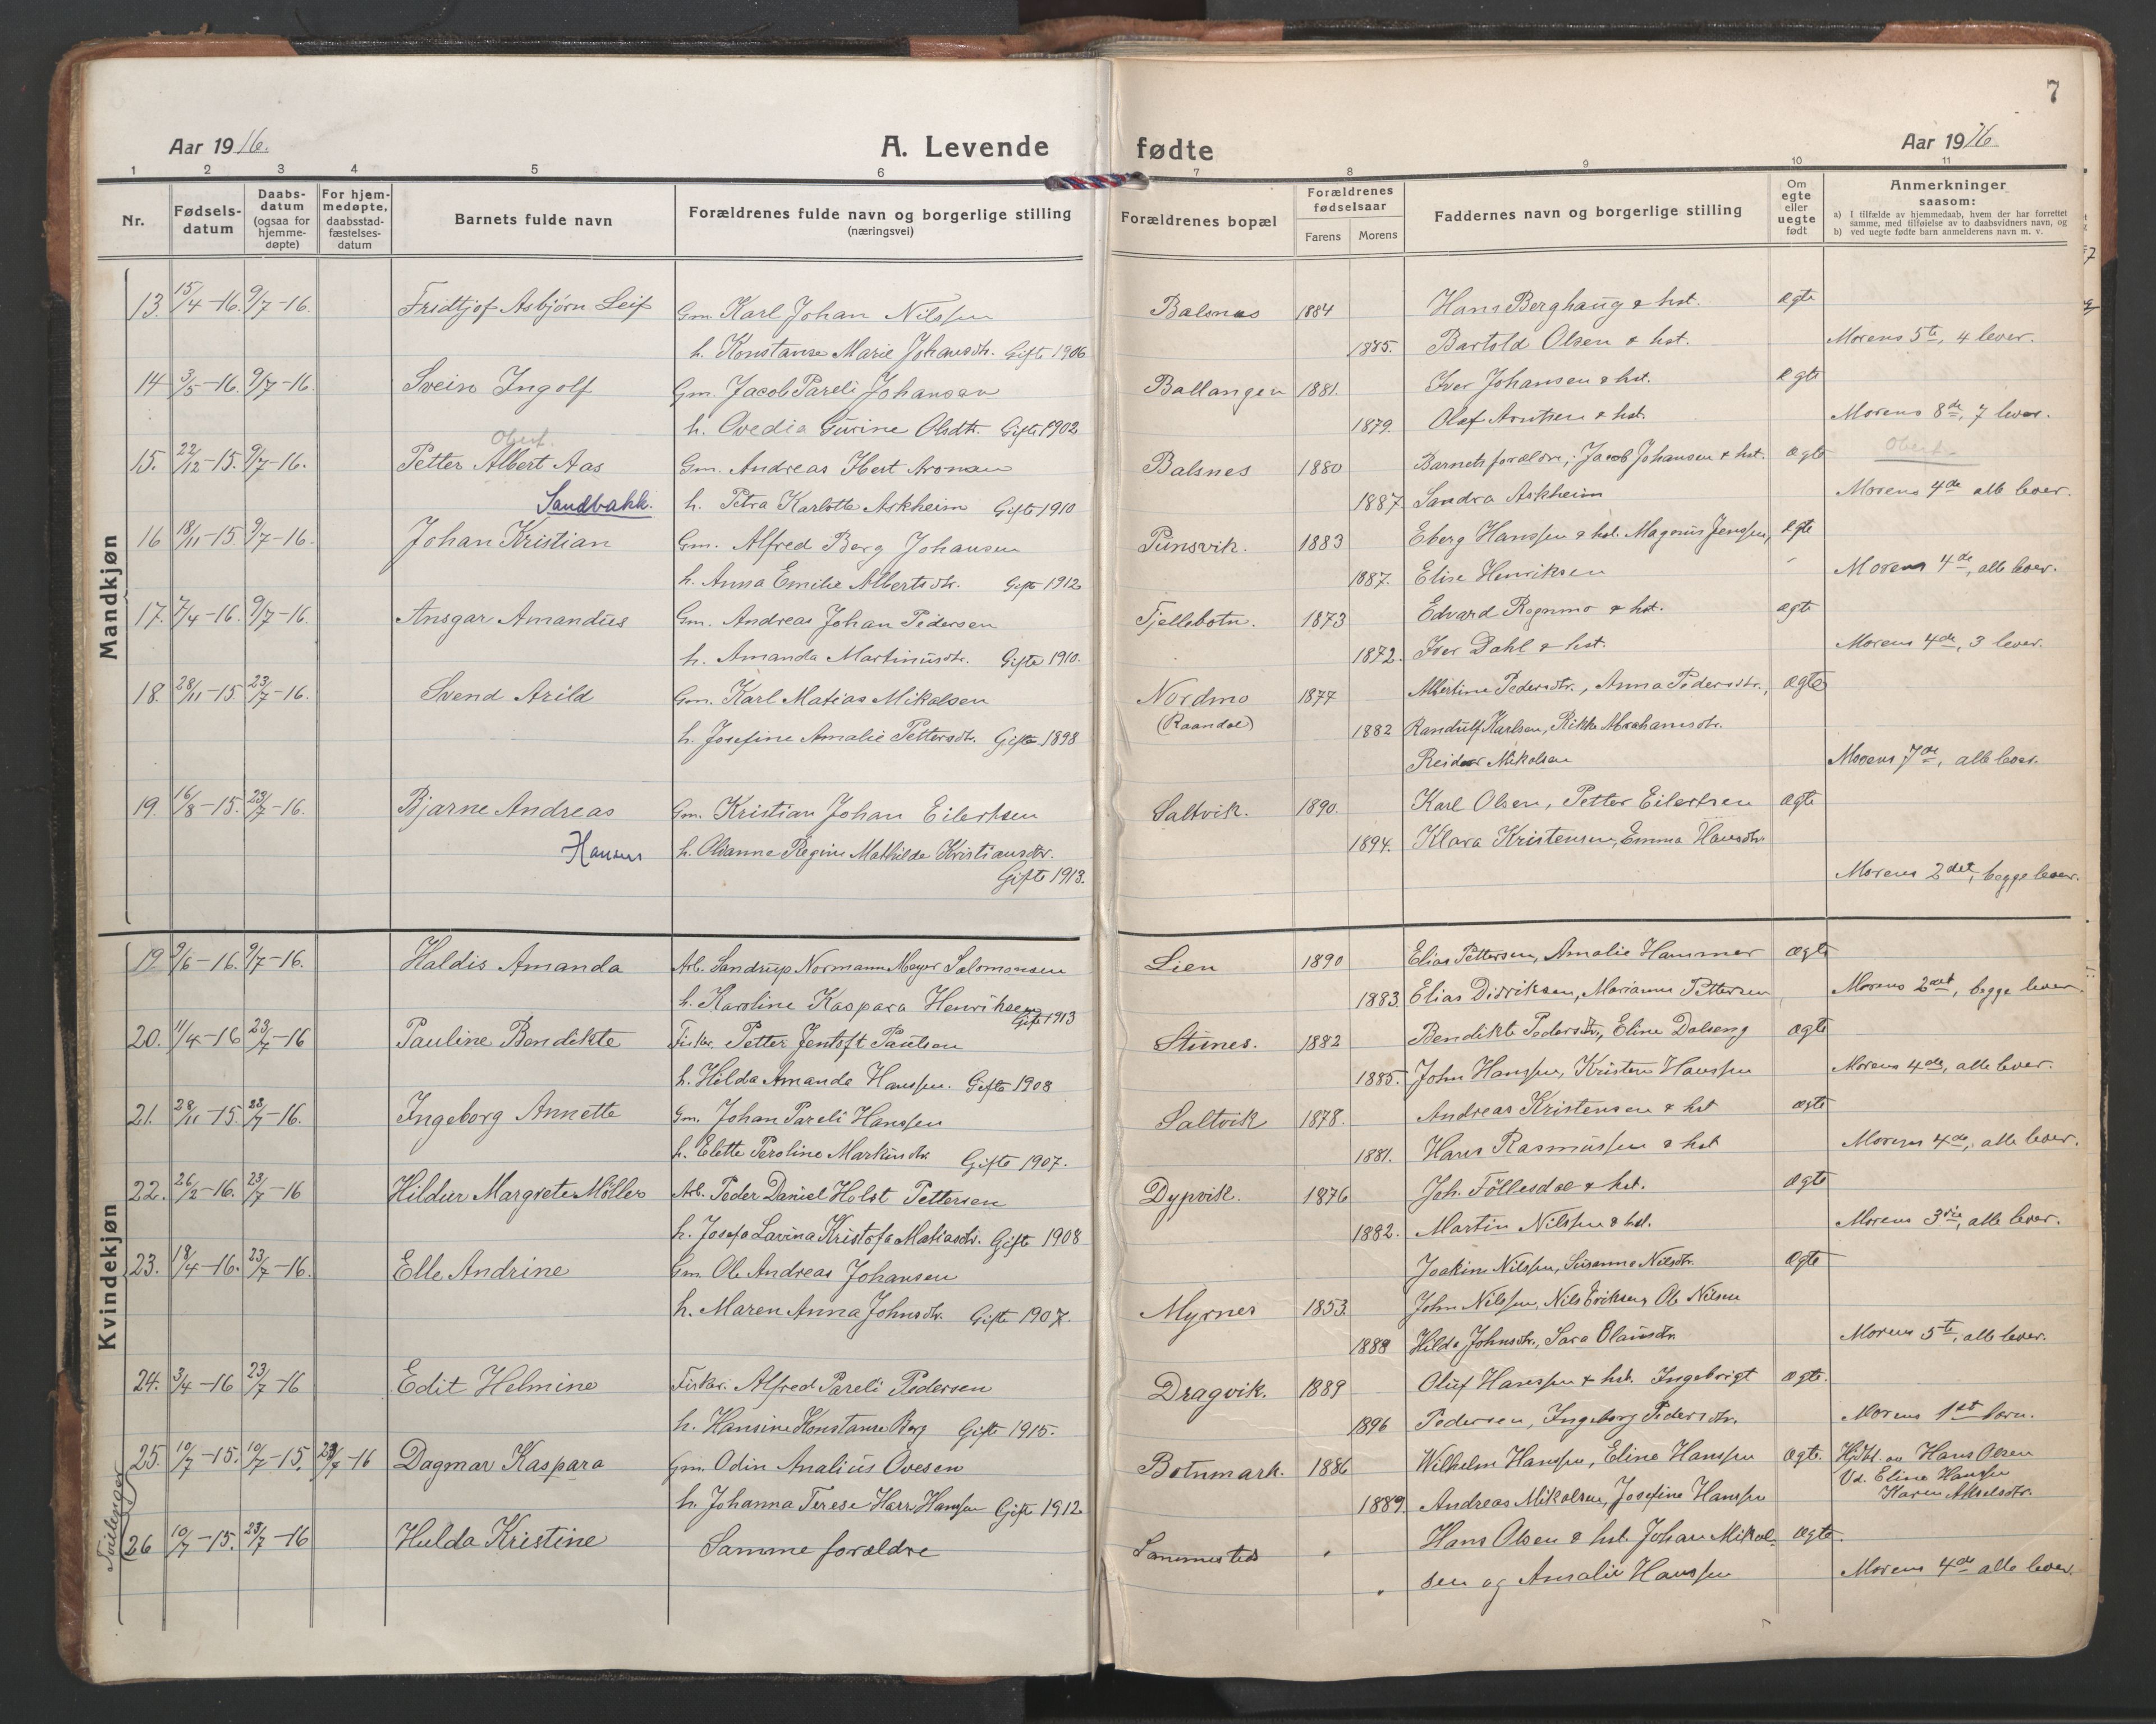 7
Aar 1916.
A. Levende fødte
Aar 1916
1 2 3 4 5 6 7 8 9 10 11
Nr.
Fødsels-datum
Daabs-datum (ogsaa for hjemme-døpte)
For hjem-medøpte, daabsstad-fæstelses-datum
Barnets fulde navn
Forældrenes fulde navn og borgerlige stilling (næringsvei)
Forældrenes bopæl
Forældrenes fødselsaar
Farens Morens
Faddernes navn og borgerlige stilling
Om egte eller uegte født
Anmerkninger saasom:
a) I tilfælde av hjemmedaab, hvem der har forrettet samme, med tilføielse av to daabsvidners navn, og
b) ved uegte fødte barn anmelderens navn m. v.
Mandkjøn
13. 15/4-16. 9/7-16. Fridtjof Asbjörn Leif Gm. Karl Johan Nilssen Balsnes 1884 Hans Berghaug & hst. ægte
h. Konstanse Marie Johansdtr. Gifte 1906 1885. Bartold Olsen & hst. Morens 5te, 4 lever.
14 3/5-16. 9/7-16. Svein Ingolf Gm. Jacob Pareli Johansen Ballangen 1881. Iver Johansen & hst. ægte
h. Ovedia Gurine Olsdtr. Gifte 1902 1879. Olaf Arntsen & hst. Morens 8de, 7 lever.
15. 22/12-15. 9/7-16. Petter Albert Aas Gm. Andreas Hert Aronsen Balsnes 1880 Barnets foreldre, Jacob Johansen & hst. ægte
Sandbakk. h. Petra Karlotte Askheim Gifte 1910 1887 Sandra Askheim Morens 4de alle lever.
16 18/11-15. 9/7-16. Johan Kristian Gm. Alfred Berg Johansen Punsvik. 1883 Eberg Hanssen & hst. Magnus Jenssen, ægte
h. Anna Emilie Albertsdtr. Gifte 1912 1887. Elise Henriksen Morens 4de, alle lever.
17. 7/4-16. 9/7-16. Ansgar Amandus Gm. Andreas Johan Pedersen Fjellbotn. 1873 Edvard Rognmo & hst. ægte
h. Amanda Martinusdtr. Gifte 1910. 1872. Iver Dahl & hst. Morens 4de, 3 lever.
18. 28/11-15 23/7-16. Svend Arild Gm. Karl Matias Mikalsen Nordmo 1877 Albertine Pedersdtr., Anna Pedersdtr., ægte
h. Josefine Amalie Pettersdtr. Gifte 1898 (Raandal) 1882 Randulf Karlsen, Rikka Abrahamsdtr.
Reidar Mikalsen Morens 7de, alle lever.
19. 16/8-15. 23/7-16. Bjarne Andreas Gm. Kristian Johan Eilertsen Saltvik. 1890. Karl Olsen, Petter Eilertsen ægte
Hansen h. Olianne Regine Mathilde Kristiansdtr. 1894. Klara Kristensen, Emma Hansdtr.
Gifte 1913. Morens 2det, begge lever.
Kvindekjøn
19. 9/6-16. 9/7-16. Haldis Amanda Arb. Sandrup Normann Meyer Salomonsen Lien 1890 Elias Pettersen, Amalie Hammer ægte
h. Karoline Kaspara Henriksen Gifte 1913 1883. Elias Didriksen, Marianne Pettersen Morens 2det, begge lever.
20. 11/4-16 23/7-16 Pauline Bendikte Fisker. Petter Jentoft Paulsen Stunes. 1882 Bendikte Pedersdtr., Eline Dalseng ægte
h. Hilda Amanda Hanssen. Gifte 1908 1885. John Hanssen, Kristen Hanssen Morens 4de, alle lever.
21. 28/11-15. 23/7-16. Ingeborg Annette Gm. Johan Pareli Hanssen Saltvik 1878. Andreas Kristensen & hst ægte
h. Elette Peroline Markusdtr. Gifte 1907. 1881. Hans Rasmussen & hst Morens 4de, alle lever.
22. 26/2-16. 23/7-16 Hildur Margrete Möller Arb. Peder Daniel Holst Pettersen Dypvik. 1876 Joh. Föllesdal & hst. ægte
h. Josefa Lavina Kristofa Matiasdtr. Gifte 1908 1882. Martin Nilssen & hst. Morens 3die, alle lever.
23. 18/4-16. 23/7-16. Elle Andrine Gm. Ole Andreas Johansen Joakim Nilssen, Susanna Nilsdtr. ægte
h. Maren Anna Johnsdtr. Gifte 1907. Myrnes 1853. John Nilssen, Nils Eriksen, Ole Nilsen
1888 Hilda Johnsdtr., Sara Olausdtr. Morens 5te, alle lever.
24. 3/4-16 23/7-16 Edit Helmine Fisker. Alfred Pareli Pedersen Dragvik. 1889 Oluf Hanssen & hst. Ingebrigt ægte.
h. Hansine Konstanse Berg Gifte 1915. 1896 Pedersen, Ingeborg Pedersdtr. Morens 1ste barn.
Tvillinger
25. 10/7-15. 10/7-15. 23/7-16 Dagmar Kaspara Gm. Odin Analius Ovesen Botnmark. 1886 Wilhelm Hanssen, Eline Hanssen ægte. Hjdbt. av Hans Olsen
Vd. Eline Hanssen
h. Johanna Terese Harr Hanssen Gifte 1912 1889. Andreas Mikalsen, Josefine Hanssen Karen Akselsdtr.
26 10/7-15. 23/7-16 Hulda Kristine Samme forældre Sammesteds " Hans Olsen & hst. Johan Mikal- ægte.
" sen og Amalie Hanssen Morens 4de alle lever.